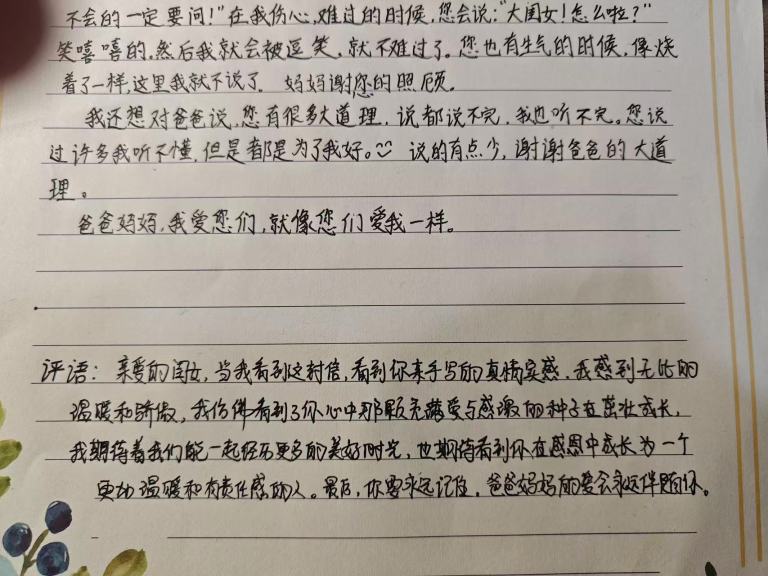 不会的一定要问!"在我伤心,难过的时候,您会说:"大闺女!怎么啦?"
笑嘻嘻的,然后我就会被逗笑,就不难过了。您也有生气的时候,像烧
着了一样,这里我就不说了。妈妈谢您的照顾。
我还想对爸爸说,您有很多大道理,说都说不完,我也听不完。您说
过许多我听不懂,但是都是为了我好。说的有点少,谢谢爸爸的大道
理。
爸爸妈妈,我爱您们,就像您们爱我一样。
评语:亲爱的闺女,当我看到这封信,看到你亲手写的真情实感,我感到无比的
温暖和骄傲,我仿佛看到了你心中那颗充满爱与感激的种子在茁壮成长,
我期待着我们能一起经历更多的美好时光,也期待看到你在感恩中成长为一个
更加温暖和有责任感的人。最后,你要永远记住,爸爸妈妈的爱会永远伴随你。